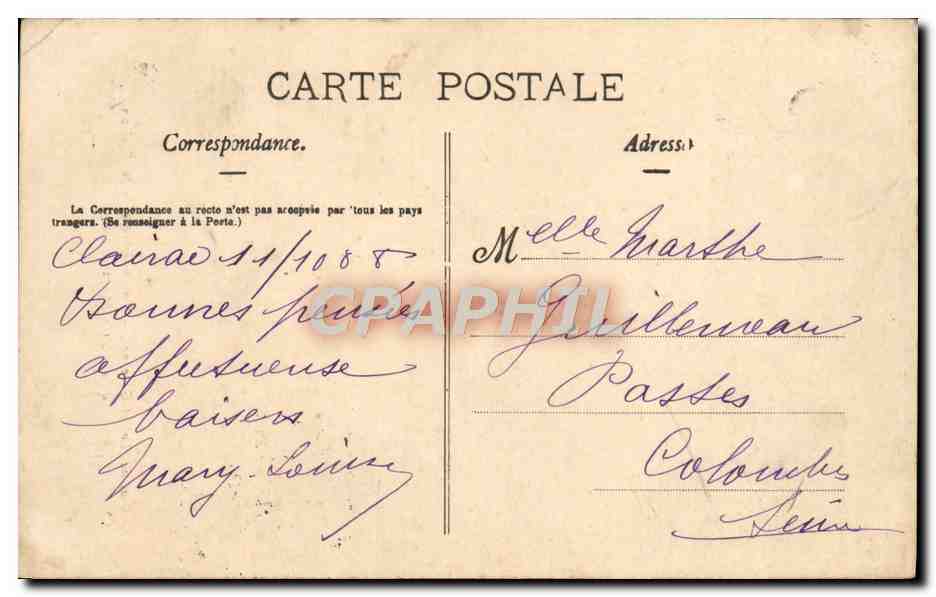 CARTE POSTALE
Correspondance.
La Correspondance au recto n'est pas acceptée par tous les pays
trangers. (Se renseigner à la Poste.)
Clairac 11/10 88
Bonnes pensées
affectueuse
baisers
Mary-Louise
Adresse
Melle Marthe
Guillemeau
Postes
Colombes
Seine
CPAPHIL